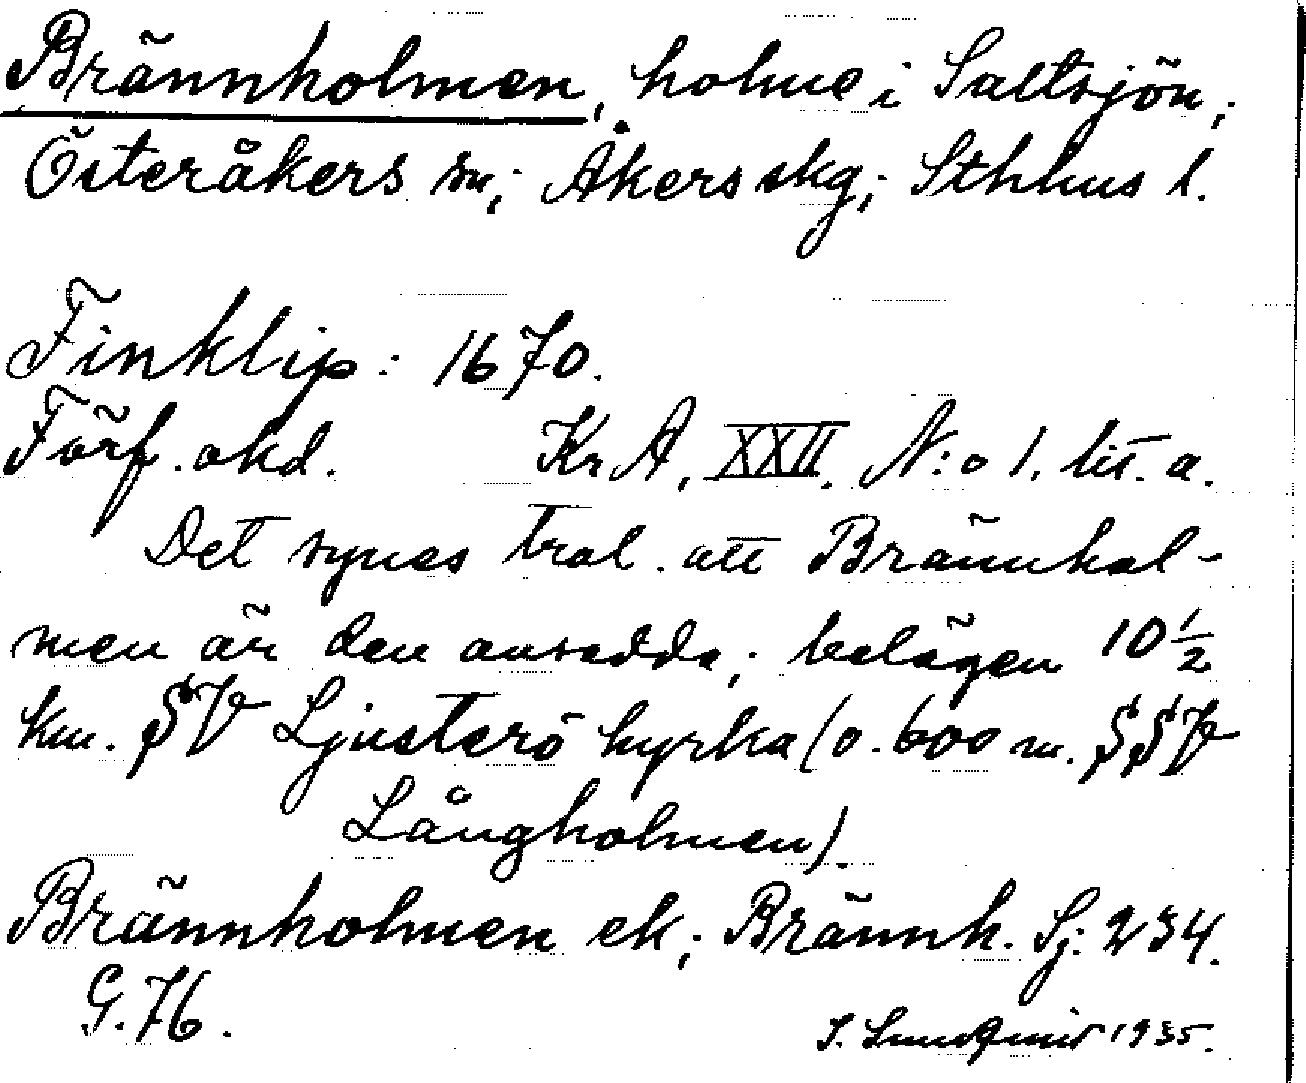 Brännholmen, holme i Saltsjön,
Österåkers sn, Åkers skg, Sthlms l.
Finklip: 1670.
Förf. okd. KrA, XXII. N:o 1. lit. a.
Det synes trol. att Brännhol-
men är den avsedda, belägen 10 1/2
km. SV Ljusterö kyrka (o. 600 m. SSV
Långholmen).
Brännholmen ek, Brännh. Sj: 234.
G. 76.
S. Lundqvist 1935.